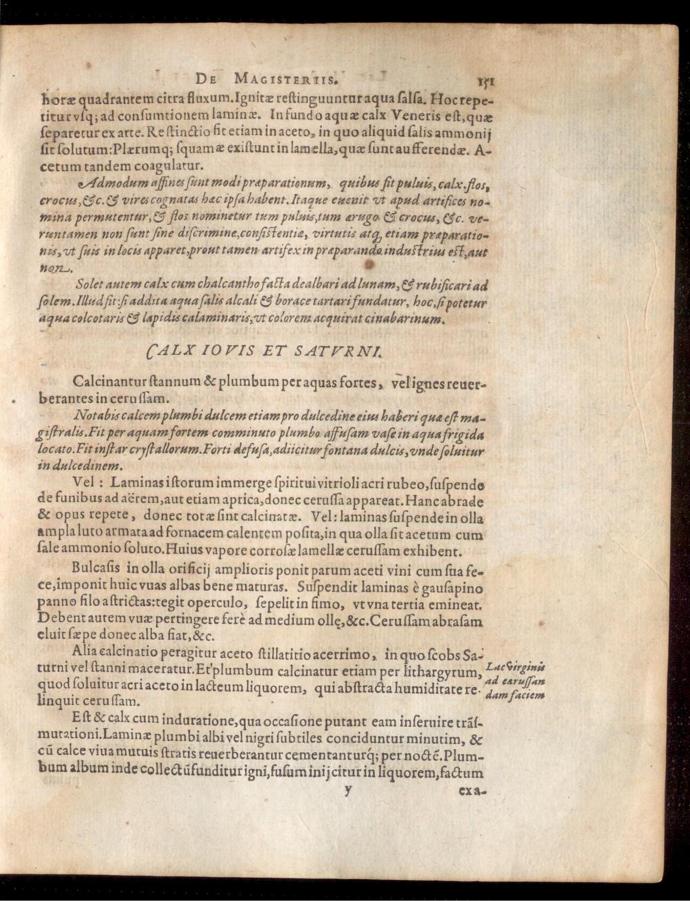 DE MAGISTERIIS. 151
horæ quadrantem citra fluxum. Ignitæ restinguuntur aqua salsa. Hoc repe-
titur vsq; ad consumtionem laminæ. In fundo aquæ calx Veneris est, quæ
separetur ex arte. Restinctio fit etiam in aceto, in quo aliquid salis ammonij
sit solutum: Plærumq; squamæ existunt in lamella, quæ sunt aufferendæ. A-
cetum tandem coagulatur.
Admodum affines sunt modi præparationum, quibus fit puluis, calx. flos,
crocus, &c. & vires cognatas hæc ipsa habent. Itaque euenit vt apud artifices no-
mina permutentur, & flos nominetur tum puluis, tum ærugo & crocus, &c. ve-
runtamen non sunt sine discrimine, consistentiæ, virtutis atq, etiam præparatio-
nis, vt suis in locis apparet, prout tamen artifex in præparando industrius est, aut
non.
Solet autem calx cum chalcantho facta dealbari ad lunam, & rubificari ad
solem. Illud fit: si addita aqua salis alcali & borace tartari fundatur, hoc, si potetur
aqua colcotaris & lapidis calaminaris, vt colorem acquirat cinabarinum.
CALX IOVIS ET SATVRNI.
Calcinantur stannum & plumbum per aquas fortes, vel ignes reuer-
berantes in cerussam.
Notabis calcem plumbi dulcem etiam pro dulcedine eius haberi quæ est ma-
gistralis. Fit per aquam fortem comminuto plumbo affusam vase in aqua frigida
locato. Fit instar crystallorum. Forti defusa, adiicitur fontana dulcis, vnde soluitur
in dulcedinem.
Vel : Laminas istorum immerge spiritui vitrioli acri rubeo, suspende
de funibus ad aërem, aut etiam aprica, donec cerussa appareat. Hanc abrade
& opus repete, donec totæ sint calcinatæ. Vel: laminas suspende in olla
ampla luto armata ad fornacem calentem posita, in qua olla sit acetum cum
sale ammonio soluto. Huius vapore corrosæ lamellæ cerussam exhibent.
Bulcasis in olla orificij amplioris ponit parum aceti vini cum sua fe-
ce, imponit huic vuas albas bene maturas. Suspendit laminas è gausapino
panno filo astrictas: tegit operculo, sepelit in fimo, vt vna tertia emineat.
Debent autem vuæ pertingere ferè ad medium ollę, &c. Cerussam abrasam
eluit sæpe donec alba fiat, &c.
Alia calcinatio peragitur aceto stillatitio acerrimo, in quo scobs Sa-
turni vel stanni maceratur. Et plumbum calcinatur etiam per lithargyrum,
quod soluitur acri aceto in lacteum liquorem, qui abstracta humiditate re-
linquit cerussam.
Lac virginis
ad cerussan
dam faciem
Est & calx cum induratione, qua occasione putant eam inseruire trãs-
mutationi. Laminæ plumbi albi vel nigri subtiles conciduntur minutim, &
cũ calce viua mutuis stratis reuerberantur cementanturq; per noctẽ. Plum-
bum album inde collectũ funditur igni, fusum inijcitur in liquorem, factum
y exa-